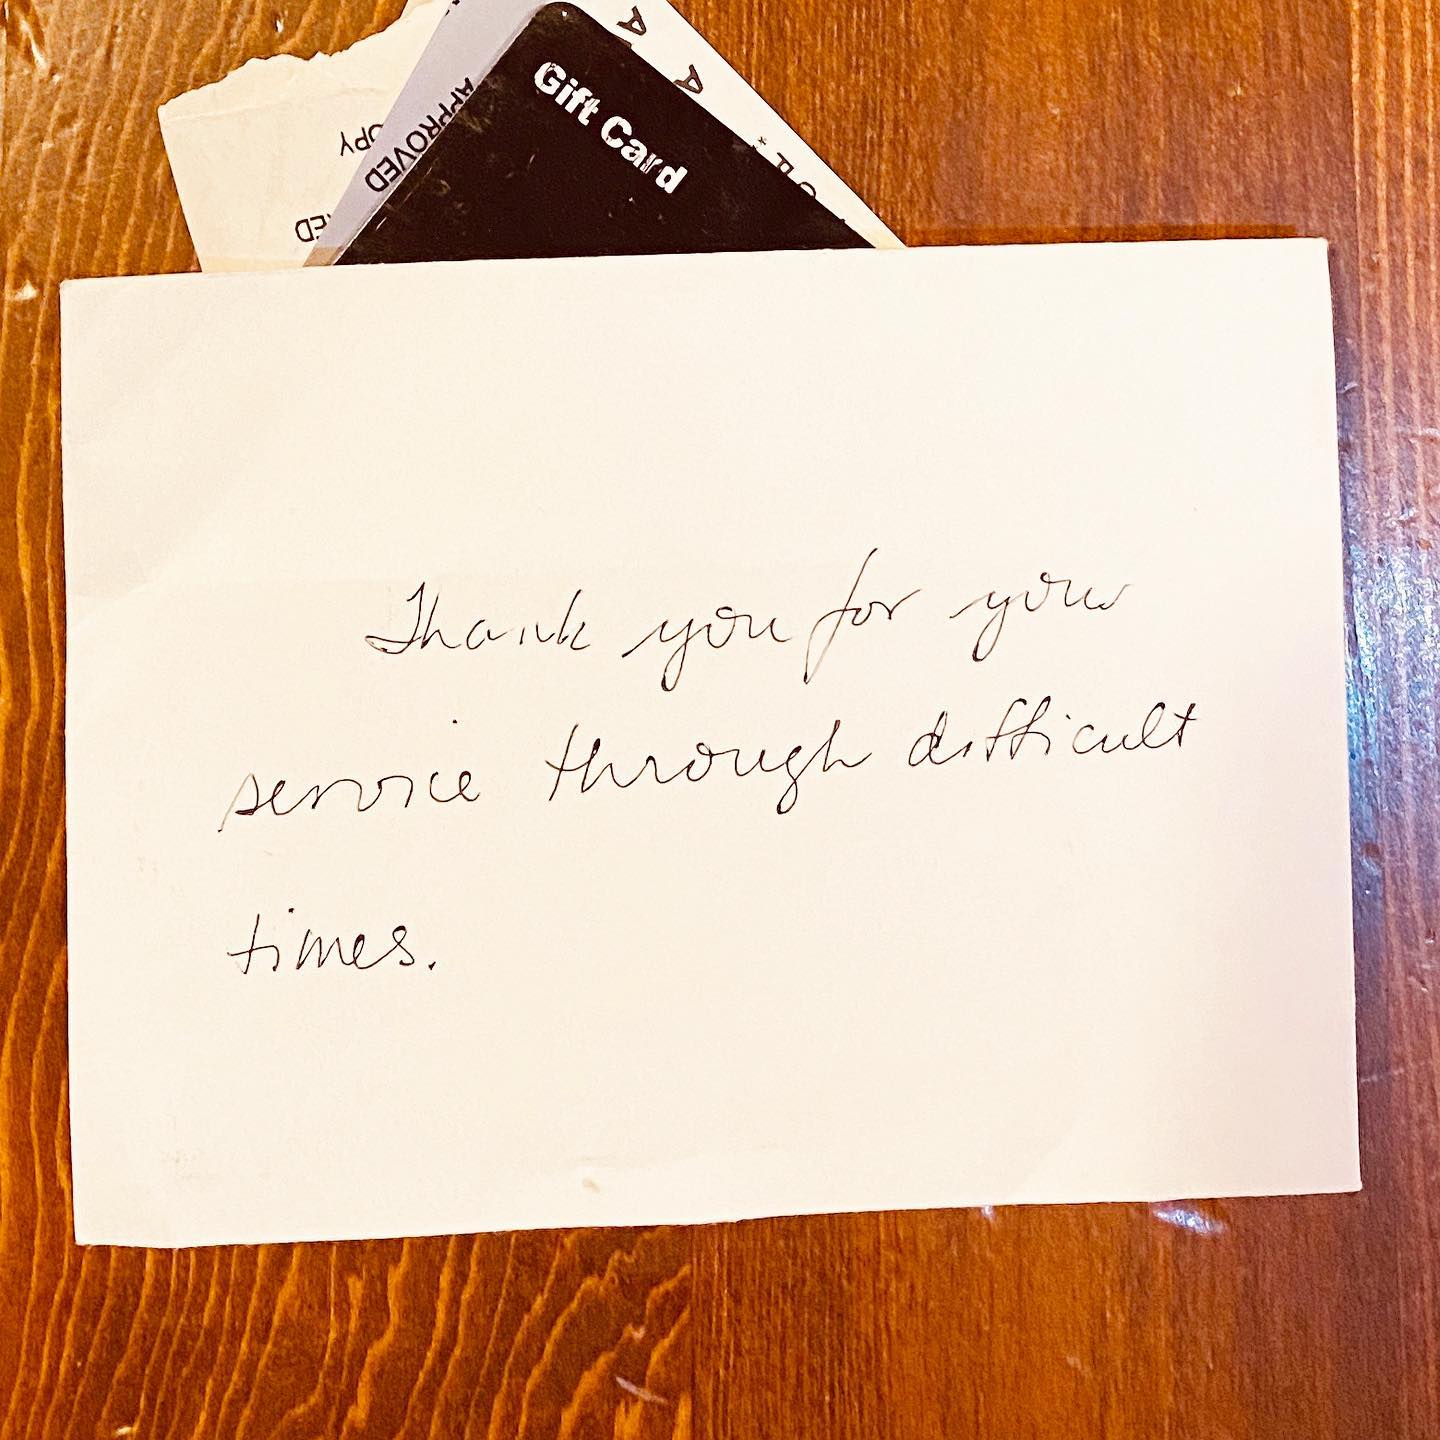 Gift Card
APPROVED
Thank you for your
service through difficult
times.